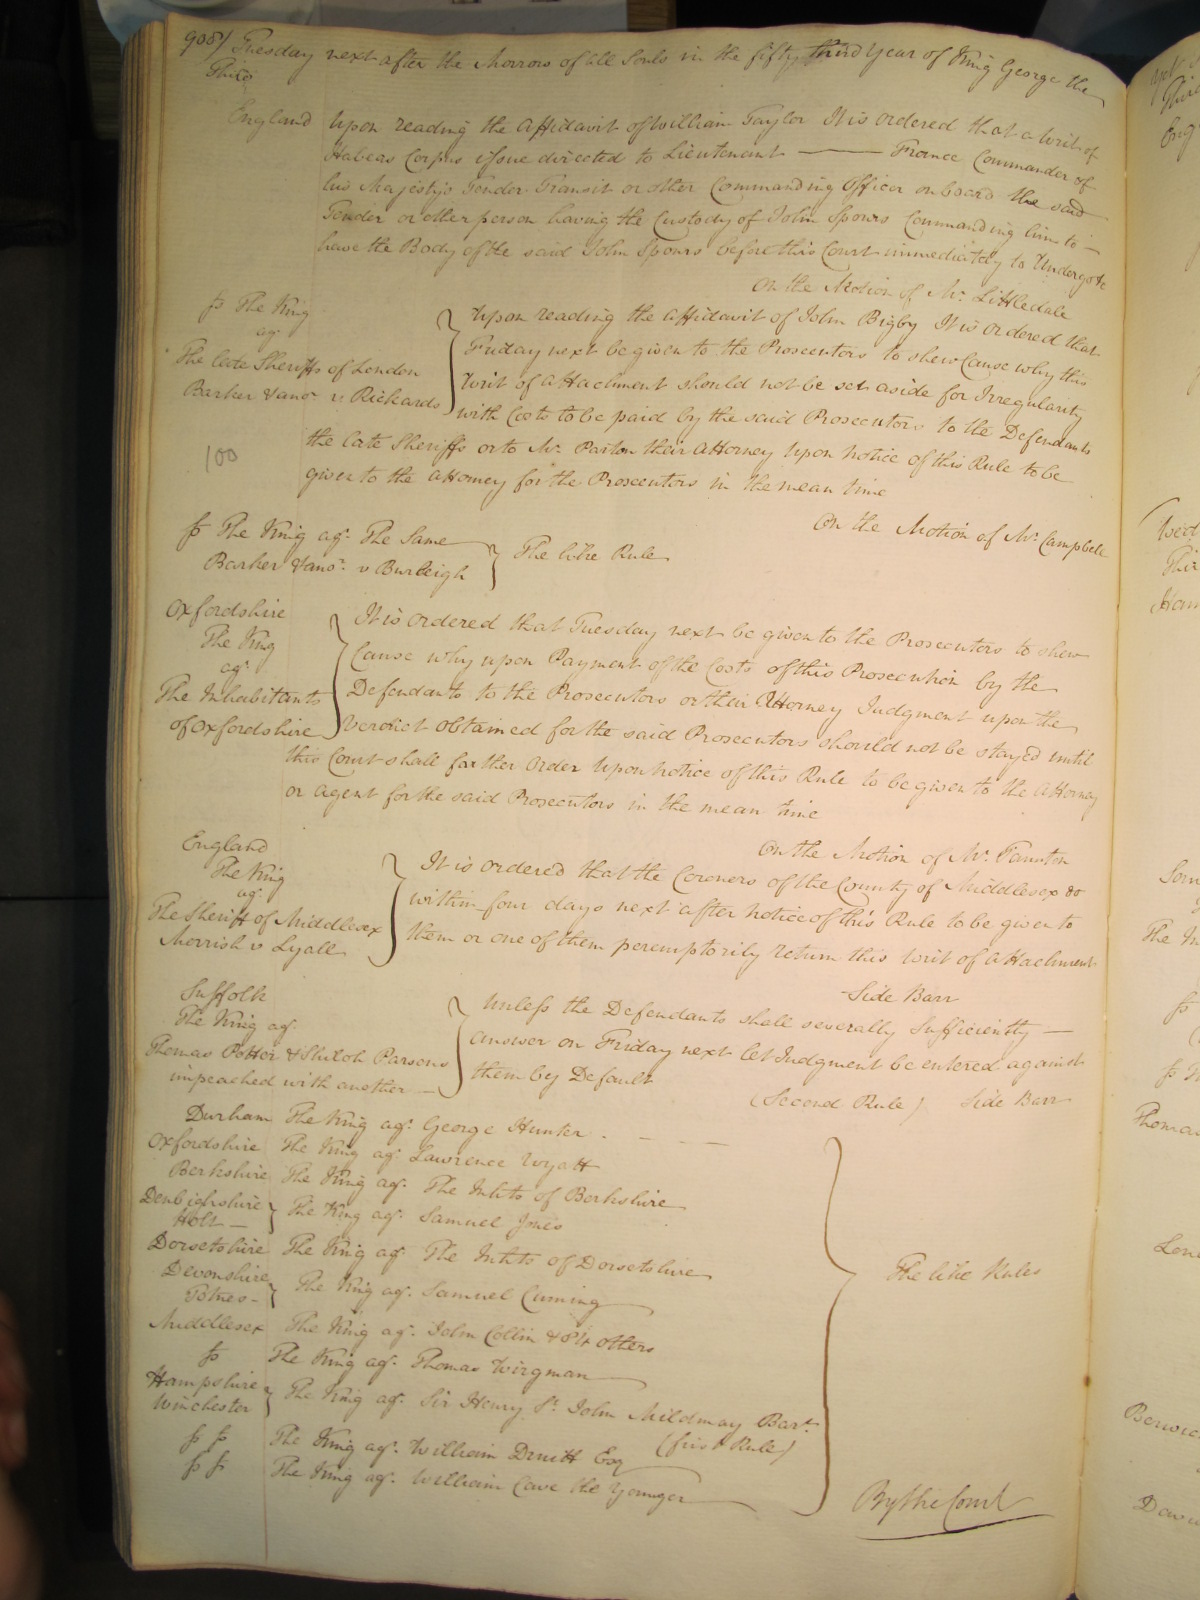 908/ Tuesday next after the Morrow of All Souls in the fifty third Year of King George the
Third
England Upon reading the Affidavit of William Taylor It is ordered that a Writ of
Habeas Corpus issue directed to Lieutenant ——— France Commander of
his Majesty's Tender Transit or other Commanding Officer on board the said
Tender or other person having the Custody of John Spours Commanding him to —
have the Body of the said John Spours before this Court immediately to Undergo &c
On the Motion of Mr. Littledale
The King
agt.
The late Sheriffs of London
Barker & anor v Rickards
Upon reading the Affidavit of John Bigby It is ordered that
Friday next be given to the Prosecutors to shew Cause why this
Writ of Attachment should not be set aside for Irregularity
with Costs to be paid by the said Prosecutors to the Defendants
100
the late Sheriffs or to Mr. Parton their Attorney Upon Notice of this Rule to be
given to the Attorney for the Prosecutors in the mean time
On the Motion of Mr. Campbell
The King agt. The Same
Barker & anor. v Burleigh
The like Rule
Oxfordshire
The King
agt.
The Inhabitants
of Oxfordshire
It is ordered that Tuesday next be given to the Prosecutors to shew
Cause why upon Payment of the Costs of this Prosecution by the
Defendants to the Prosecutors or their Attorney Judgment upon the
Verdict obtained for the said Prosecutors should not be stayed until
this Court shall farther Order Upon notice of this Rule to be given to the Attorney
or Agent for the said Prosecutors in the mean time
On the Motion of Mr. Taunton
England
The King
agt.
The Sheriff of Middlesex
Morrish v Lyall
It is ordered that the Coroners of the County of Middlesex do
within four days next after notice of this Rule to be given to
them or one of them peremptorily return this Writ of Attachment
Side Barr
Suffolk
The King agt.
Thomas Potter & Shiloh Parsons
impeached with another —
Unless the Defendants shall severally Sufficiently —
Answer on Friday next let Judgment be entered against
them by Default
(Second Rule) Side Barr
Durham The King agt. George Hunter
Oxfordshire The King agt. Lawrence Wyatt
Berkshire The King agt. The Inhts of Berkshire
Denbighshire
Holt —
The King agt. Samuel Jones
Dorsetshire The King agt. The Inhts of Dorsetshire
The like Rules
Devonshire
Totnes —
The King agt. Samuel Cuming
Middlesex The King agt. John Collin & 84 others
The King agt. Thomas Wirgman
Hampshire
Winchester
The King agt. Sir Henry St. John Mildmay Bart.
(first Rule)
The King agt. William Druitt Esq
The King agt. William Cave the Younger
By the Court